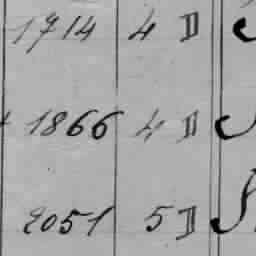 1714 4 D
1866 4 D
2051 5 D